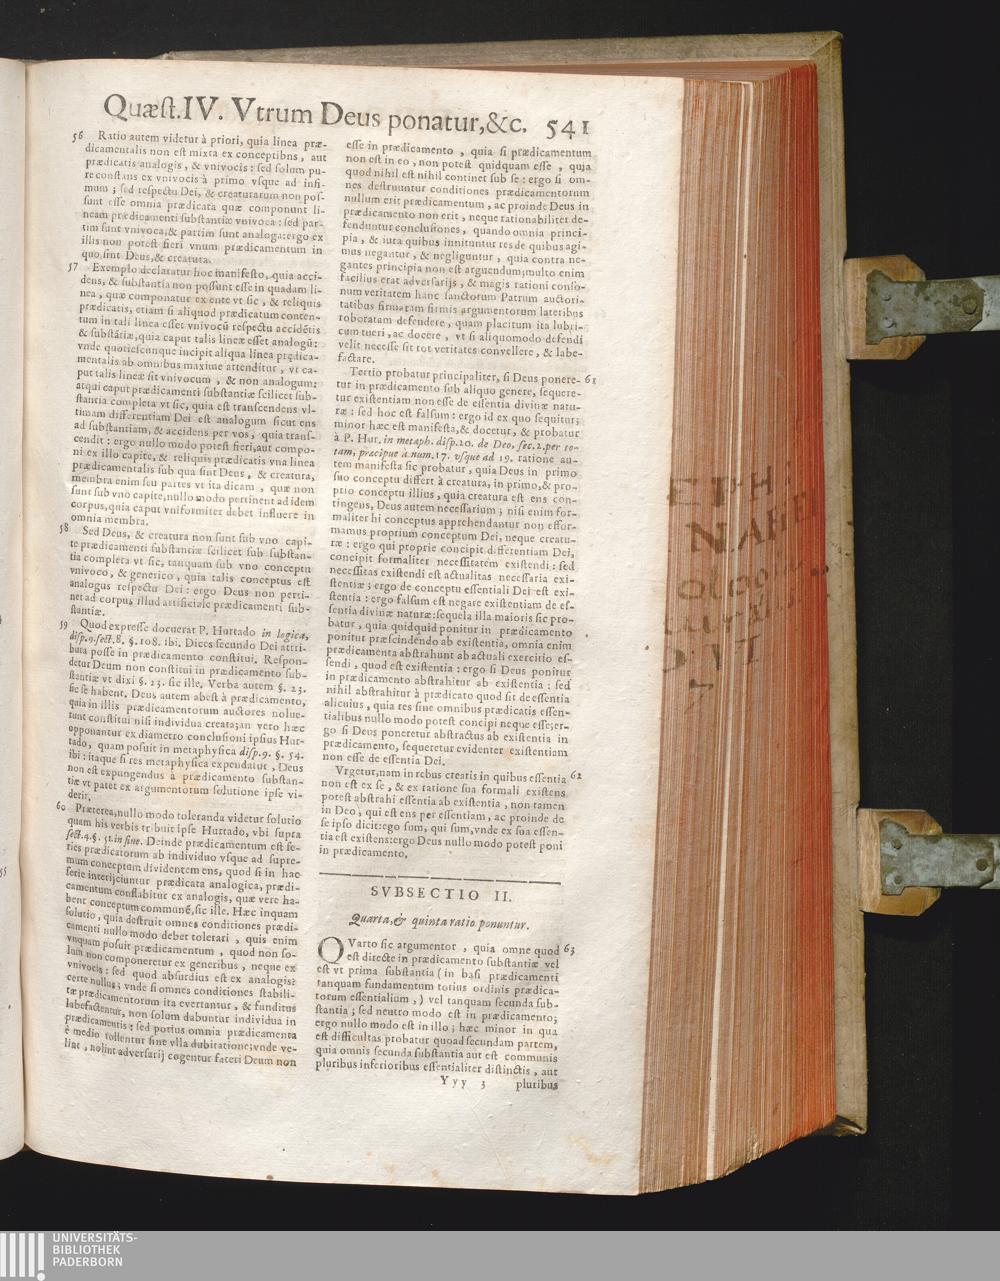 Quæſt.IV. Vtrum Deus ponatur,&c. 541
56 Ratio autem videtur à priori, quia linea præ-
dicamentalis non eſt mixta ex conceptibns, aut
prædicatis analogis, & vnivocis: ſed ſolum pu-
re conſtans ex vnivocis à primo vſque ad infi-
mum; ſed reſpectu Dei, & creaturarum non poſ-
ſunt eſſe omnia prædicata quæ componunt li-
neam prædicamenti ſubſtantiæ vnivoca: ſed par-
tim ſunt vnivoca,& partim ſunt analoga:ergo ex
illis non poteſt fieri vnum prædicamentum in
quo,ſint Deus,& creatura.
57 Exemplo declaratur hoc manifeſto, quia acci-
dens, & ſubſtantia non poſſunt eſſe in quadam li-
nea, quæ componatur ex ente vt ſic, & reliquis
prædicatis, etiam ſi aliquod prædicatum conten-
tum in tali linea eſſet vnivocũ reſpectu accidẽtis
& ſubſtãtiæ,quia caput talis lineæ eſſet analogũ:
vnde quotieſcunque incipit aliqua linea prędica-
mentalis ab omnibus maxime attenditur, vt ca-
put talis lineæ ſit vnivocum, & non analogum:
atqui caput prædicamenti ſubſtantiæ ſcilicet ſub-
ſtantia completa vt ſic, quia eſt tranſcendens vl-
timam differentiam Dei eſt analogum ſicut ens
ad ſubſtantiam, & accidens per vos, quia tranſ-
cendit: ergo nullo modo poteſt fieri,aut compo-
ni ex illo capite, & reliquis prædicatis vna linea
prædicamentalis ſub qua ſint Deus, & creatura,
membra enim ſeu partes vt ita dicam, quæ non
ſunt ſub vno capite,nullo modo pertinent ad idem
corpus,quia caput vniformiter debet influere in
omnia membra.
58 Sed Deus, & creatura non ſunt ſub vno capi-
te prædicamenti ſubſtantiæ ſcilicet ſub ſubſtan-
tia completa vt ſic, tanquam ſub vno conceptu
vnivoco, & generico, quia talis conceptus eſt
analogus reſpectu Dei: ergo Deus non perti-
net ad corpus illud artificiale prædicamenti ſub-
ſtantiæ.
59 Quod expreſſe docuerat P. Hurtado in logica,
diſp.9.ſect.8. §. 108. ibi. Dices ſecundo Dei attri-
buta poſſe in prædicamento conſtitui. Reſpon-
detur Deum non conſtitui in prædicamento ſub-
ſtantiæ vt dixi §. 23. ſic ille. Verba autem §. 23.
ſic ſe habent. Deus autem abeſt à prædicamento,
quia in illis prædicamentorum auctores nolue-
runt conſtitui niſi individua creata;an vero hæc
opponantur ex diametro concluſioni ipſius Hur-
tado, quam poſuit in metaphyſica diſp.9. §. 54.
ibi: itaque ſi res metaphyſica expendatur, Deus
non eſt expungendus à prædicamento ſubſtan-
tiæ vt patet ex argumentorum ſolutione ipſe vi-
derit.
60 Præterea,nullo modo toleranda videtur ſolutio
quam his verbis tribuit ipſe Hurtado, vbi ſupra
ſect.4.§. 51.in fine. Deinde prædicamentum eſt ſe-
ries prædicatorum ab individuo vſque ad ſupre-
mum conceptum dividentem ens, quod ſi in hac
ſerie interijciuntur prædicata analogica, prædi-
camentum conſtabitur ex analogis, quæ vere ha-
bent conceptum communẽ,ſic ille. Hæc inquam
ſolutio, quia deſtruit omnes conditiones prædi-
camenti nullo modo debet tolerari, quis enim
vnquam poſuit prædicamentum, quod non ſo-
lum non componeretur ex generibus, neque ex
vnivocis: ſed quod abſurdius eſt ex analogis?
certe nullus; vnde ſi omnes conditiones ſtabili-
tæ prædicamentorum ita evertantur, & funditus
labefactentur, non ſolum dabuntur individua in
prædicamentis: ſed potius omnia prædicamenta
è medio tollentur ſine vlla dubitatione;vnde ve-
lint, nolint adverſarij cogentur fateri Deum non
eſſe in prædicamento, quia ſi prædicamentum
non eſt in eo, non poteſt quidquam eſſe, quia
quod nihil eſt nihil continet ſub ſe: ergo ſi om-
nes deſtruuntur conditiones prædicamentorum
nullum erit prædicamentum, ac proinde Deus in
prædicamento non erit, neque rationabiliter de-
fenduntur concluſiones, quando omnia princi-
pia, & iura quibus innituntur res de quibus agi-
mus negantur, & negliguntur, quia contra ne-
gantes principia non eſt arguendum;multo enim
facilius erat adverſarijs, & magis rationi conſo-
num veritatem hanc ſanctorum Patrum auctori-
tatibus firmatam firmis argumentorum lateribus
roboratam defendere, quam placitum ita lubri-
cum tueri, ac docere, vt ſi aliquomodo defendi
velit neceſſe ſit tot veritates convellere, & labe-
factare.
Tertio probatur principaliter, ſi Deus ponere- 61
tur in prædicamento ſub aliquo genere, ſequere-
tur exiſtentiam non eſſe de eſſentia divinæ natu-
ræ: ſed hoc eſt falſum: ergo id ex quo ſequitur;
minor hæc eſt manifeſta,& docetur, & probatur
à P. Hur. in metaph. diſp.20. de Deo, ſec.2.per to-
tam, præcipue à num.17. vſque ad 19. ratione au-
tem manifeſta ſic probatur, quia Deus in primo
ſuo conceptu differt à creatura, in primo,& pro-
prio conceptu illius, quia creatura eſt ens con-
tingens, Deus autem neceſſarium; niſi enim for-
maliter hi conceptus apprehendantur non effor-
mamus proprium conceptum Dei, neque creatu-
ræ: ergo qui proprie concipit differentiam Dei,
concipit formaliter neceſſitatem exiſtendi: ſed
neceſſitas exiſtendi eſt actualitas neceſſaria exi-
ſtentiæ; ergo de conceptu eſſentiali Dei eſt exi-
ſtentia: ergo falſum eſt negare exiſtentiam de eſ-
ſentia divinæ naturæ:ſequela illa maioris ſic pro-
batur, quia quidquid ponitur in prædicamento
ponitur præſcindendo ab exiſtentia, omnia enim
prædicamenta abſtrahunt ab actuali exercitio eſ-
ſendi, quod eſt exiſtentia: ergo ſi Deus ponitur
in prædicamento abſtrahitur ab exiſtentia: ſed
nihil abſtrahitur à prædicato quod ſit de eſſentia
alicuius, quia res ſine omnibus prædicatis eſſen-
tialibus nullo modo poteſt concipi neque eſſe;er-
go ſi Deus poneretur abſtractus ab exiſtentia in
prædicamento, ſequeretur evidenter exiſtentiam
non eſſe de eſſentia Dei.
Vrgetur,nam in rebus creatis in quibus eſſentia 62
non eſt ex ſe, & ex ratione ſua formali exiſtens
poteſt abſtrahi eſſentia ab exiſtentia, non tamen
in Deo, qui eſt ens per eſſentiam, ac proinde de
ſe ipſo dicit:ego ſum, qui ſum,vnde ex ſua eſſen-
tia eſt exiſtens:ergo Deus nullo modo poteſt poni
in prædicamento.
SVBSECTIO II.
Quarta,& quinta ratio ponuntur.
QVarto ſic argumentor, quia omne quod 63
eſt directe in prædicamento ſubſtantiæ vel
eſt vt prima ſubſtantia (in baſi prædicamenti
tanquam fundamentum totius ordinis prædica-
torum eſſentialium,) vel tanquam ſecunda ſub-
ſtantia; ſed neutro modo eſt in prædicamento;
ergo nullo modo eſt in illo; hæc minor in qua
eſt difficultas probatur quoad ſecundam partem,
quia omnis ſecunda ſubſtantia aut eſt communis
pluribus inferioribus eſſentialiter diſtinctis, aut
Yyy 3 pluribus
UNIVERSITÄTS-
BIBLIOTHEK
PADERBORN